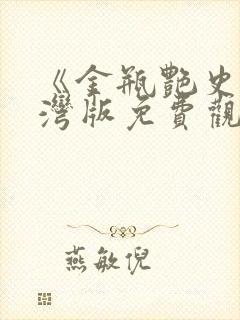 《金瓶艷史
灣版免費觀
燕敏倪